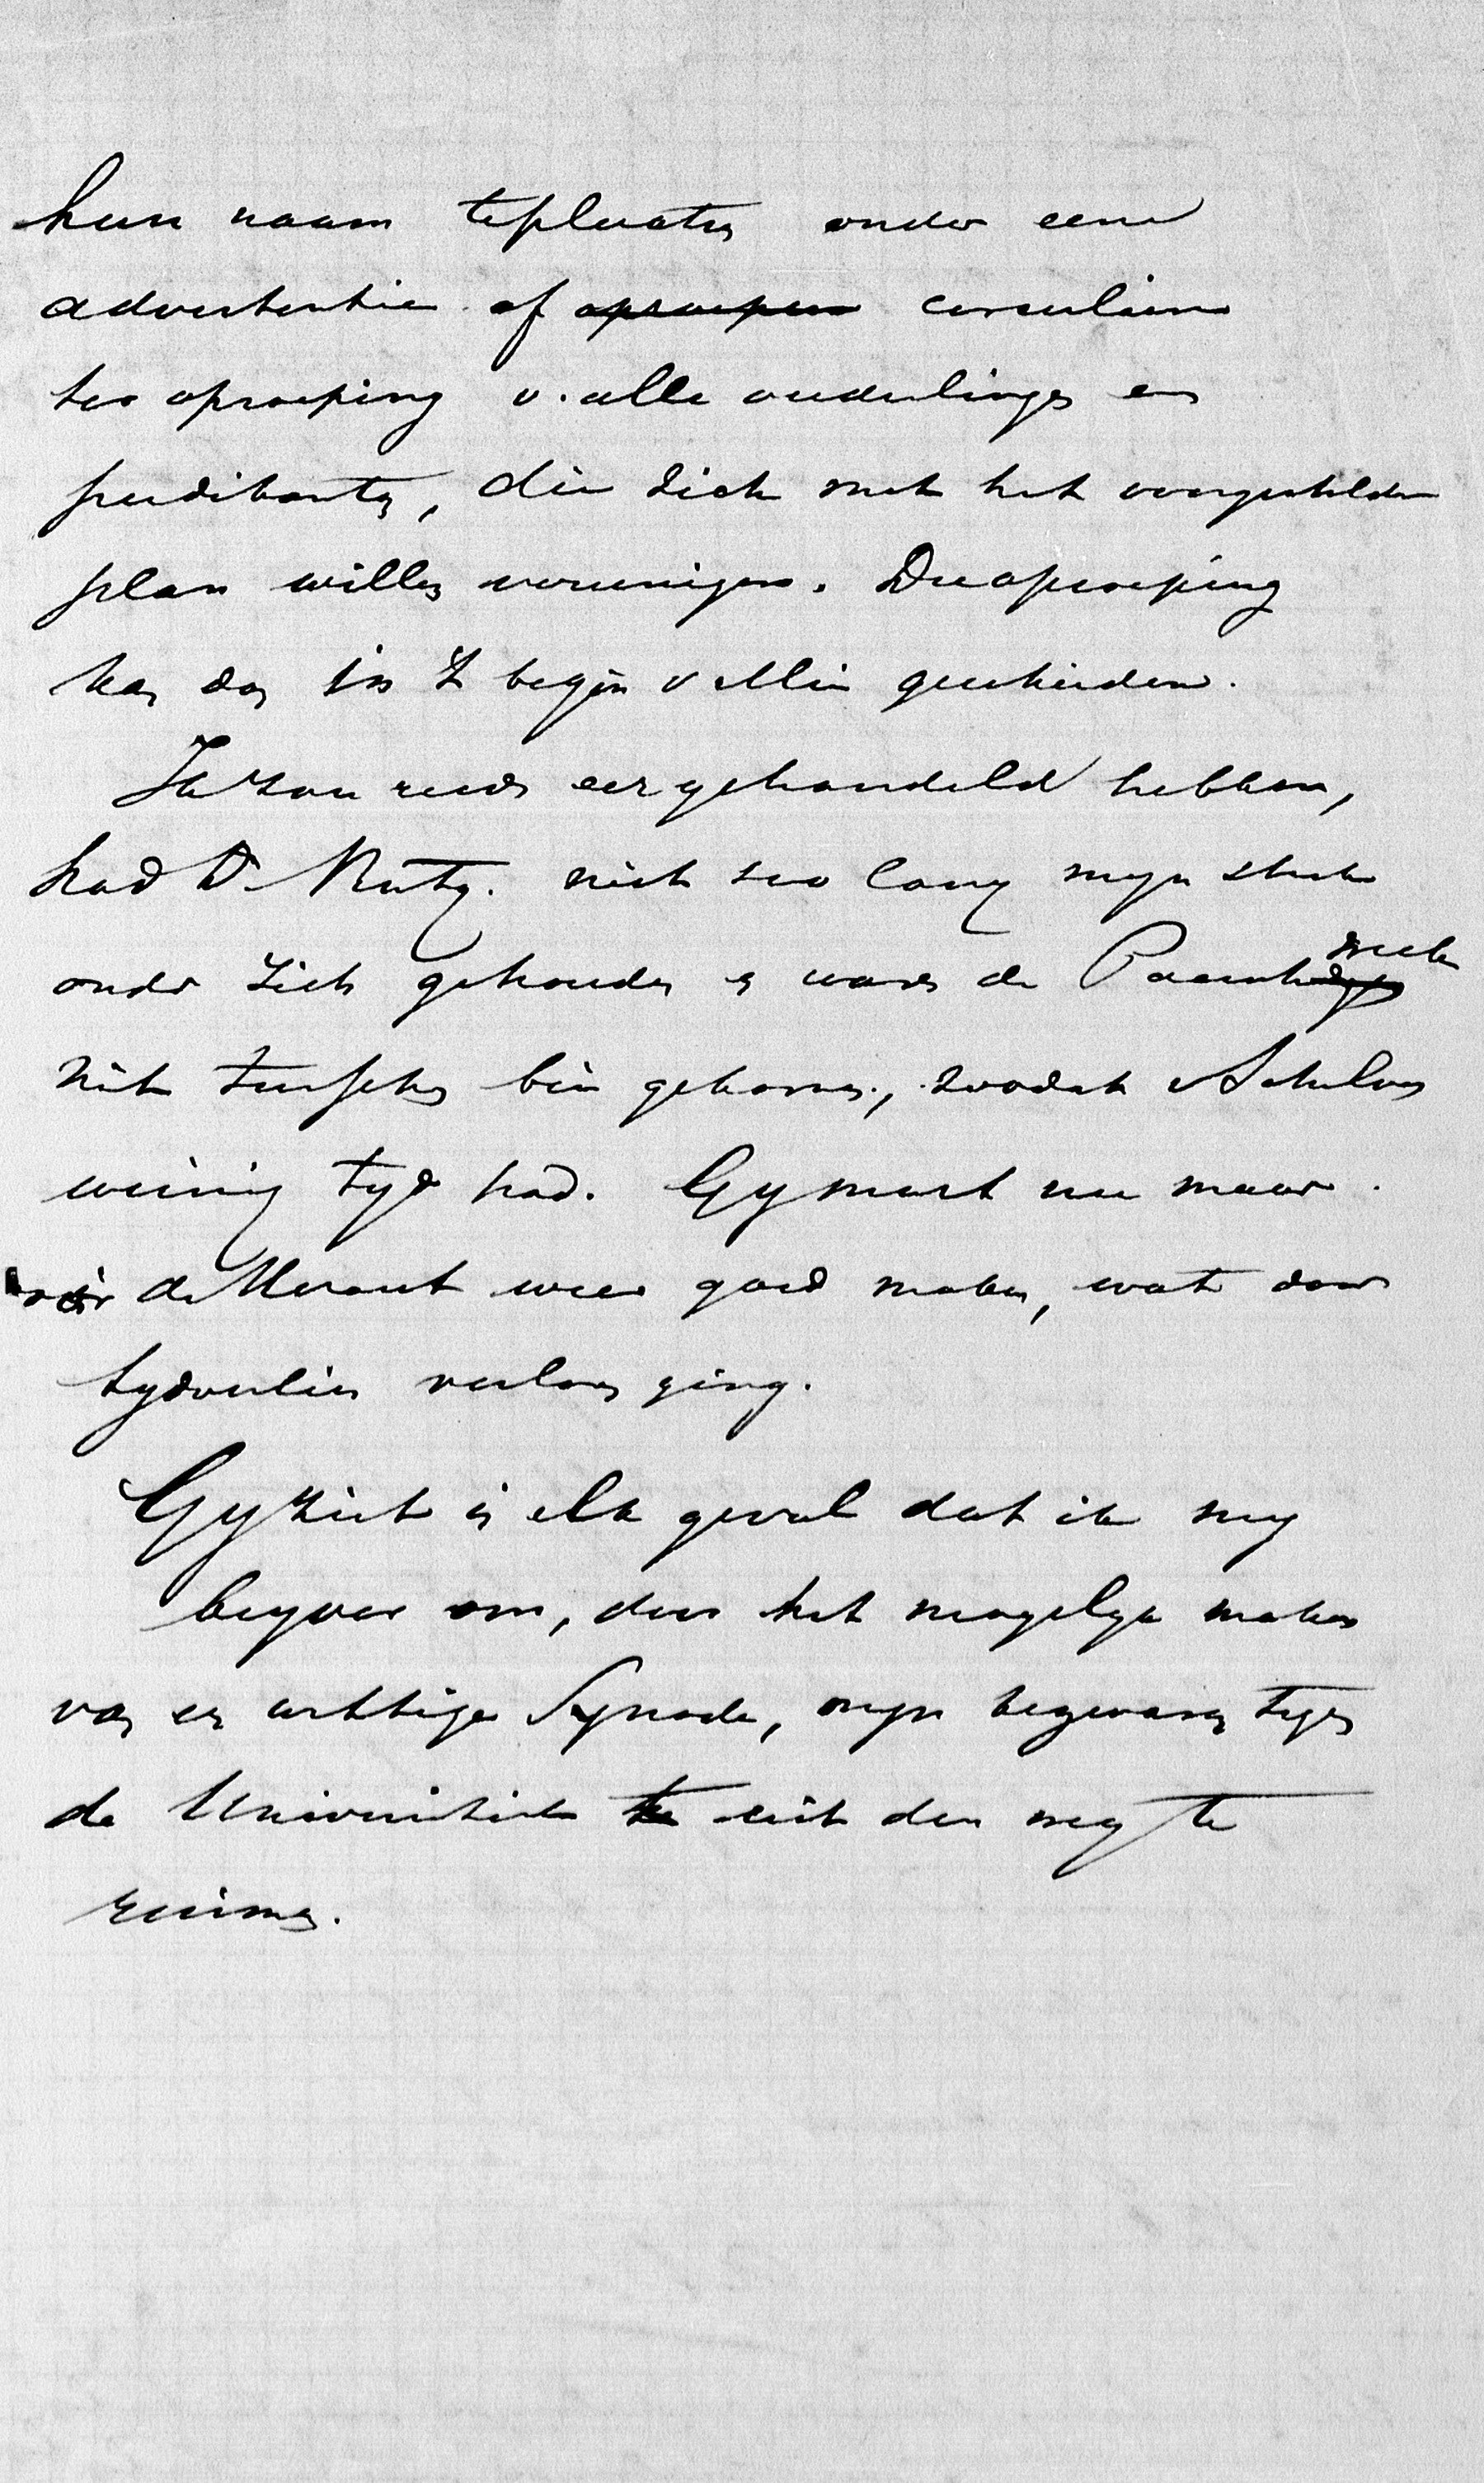 hun naam te plaatsen onder eene
advertentie of oproepen circulaire
ter oproeping v. alle ouderlingen en
predikanten, die zich met het voorgestelde
plan willen vereenigen. Die oproeping
kan dan in 't begin v Mei geschieden.
Ik zou reeds eer gehandeld hebben,
had Dr Rutg. niet zoo lang mijn stuk
onder zich gehouden en ware de Paasch week
niet tusschen bei gekomen, zoodat
weinig tijd had. Gij moet nu maar
vóór de Heraut weer goed maken, wat door
tijdverlies verloren ging.
Gij ziet in elk geval dat ik mij
beijver om, door het mogelijk maken
van en wettige Synode, mijn bezwaren tegen
de Universiteit te uit den weg te
ruimen.